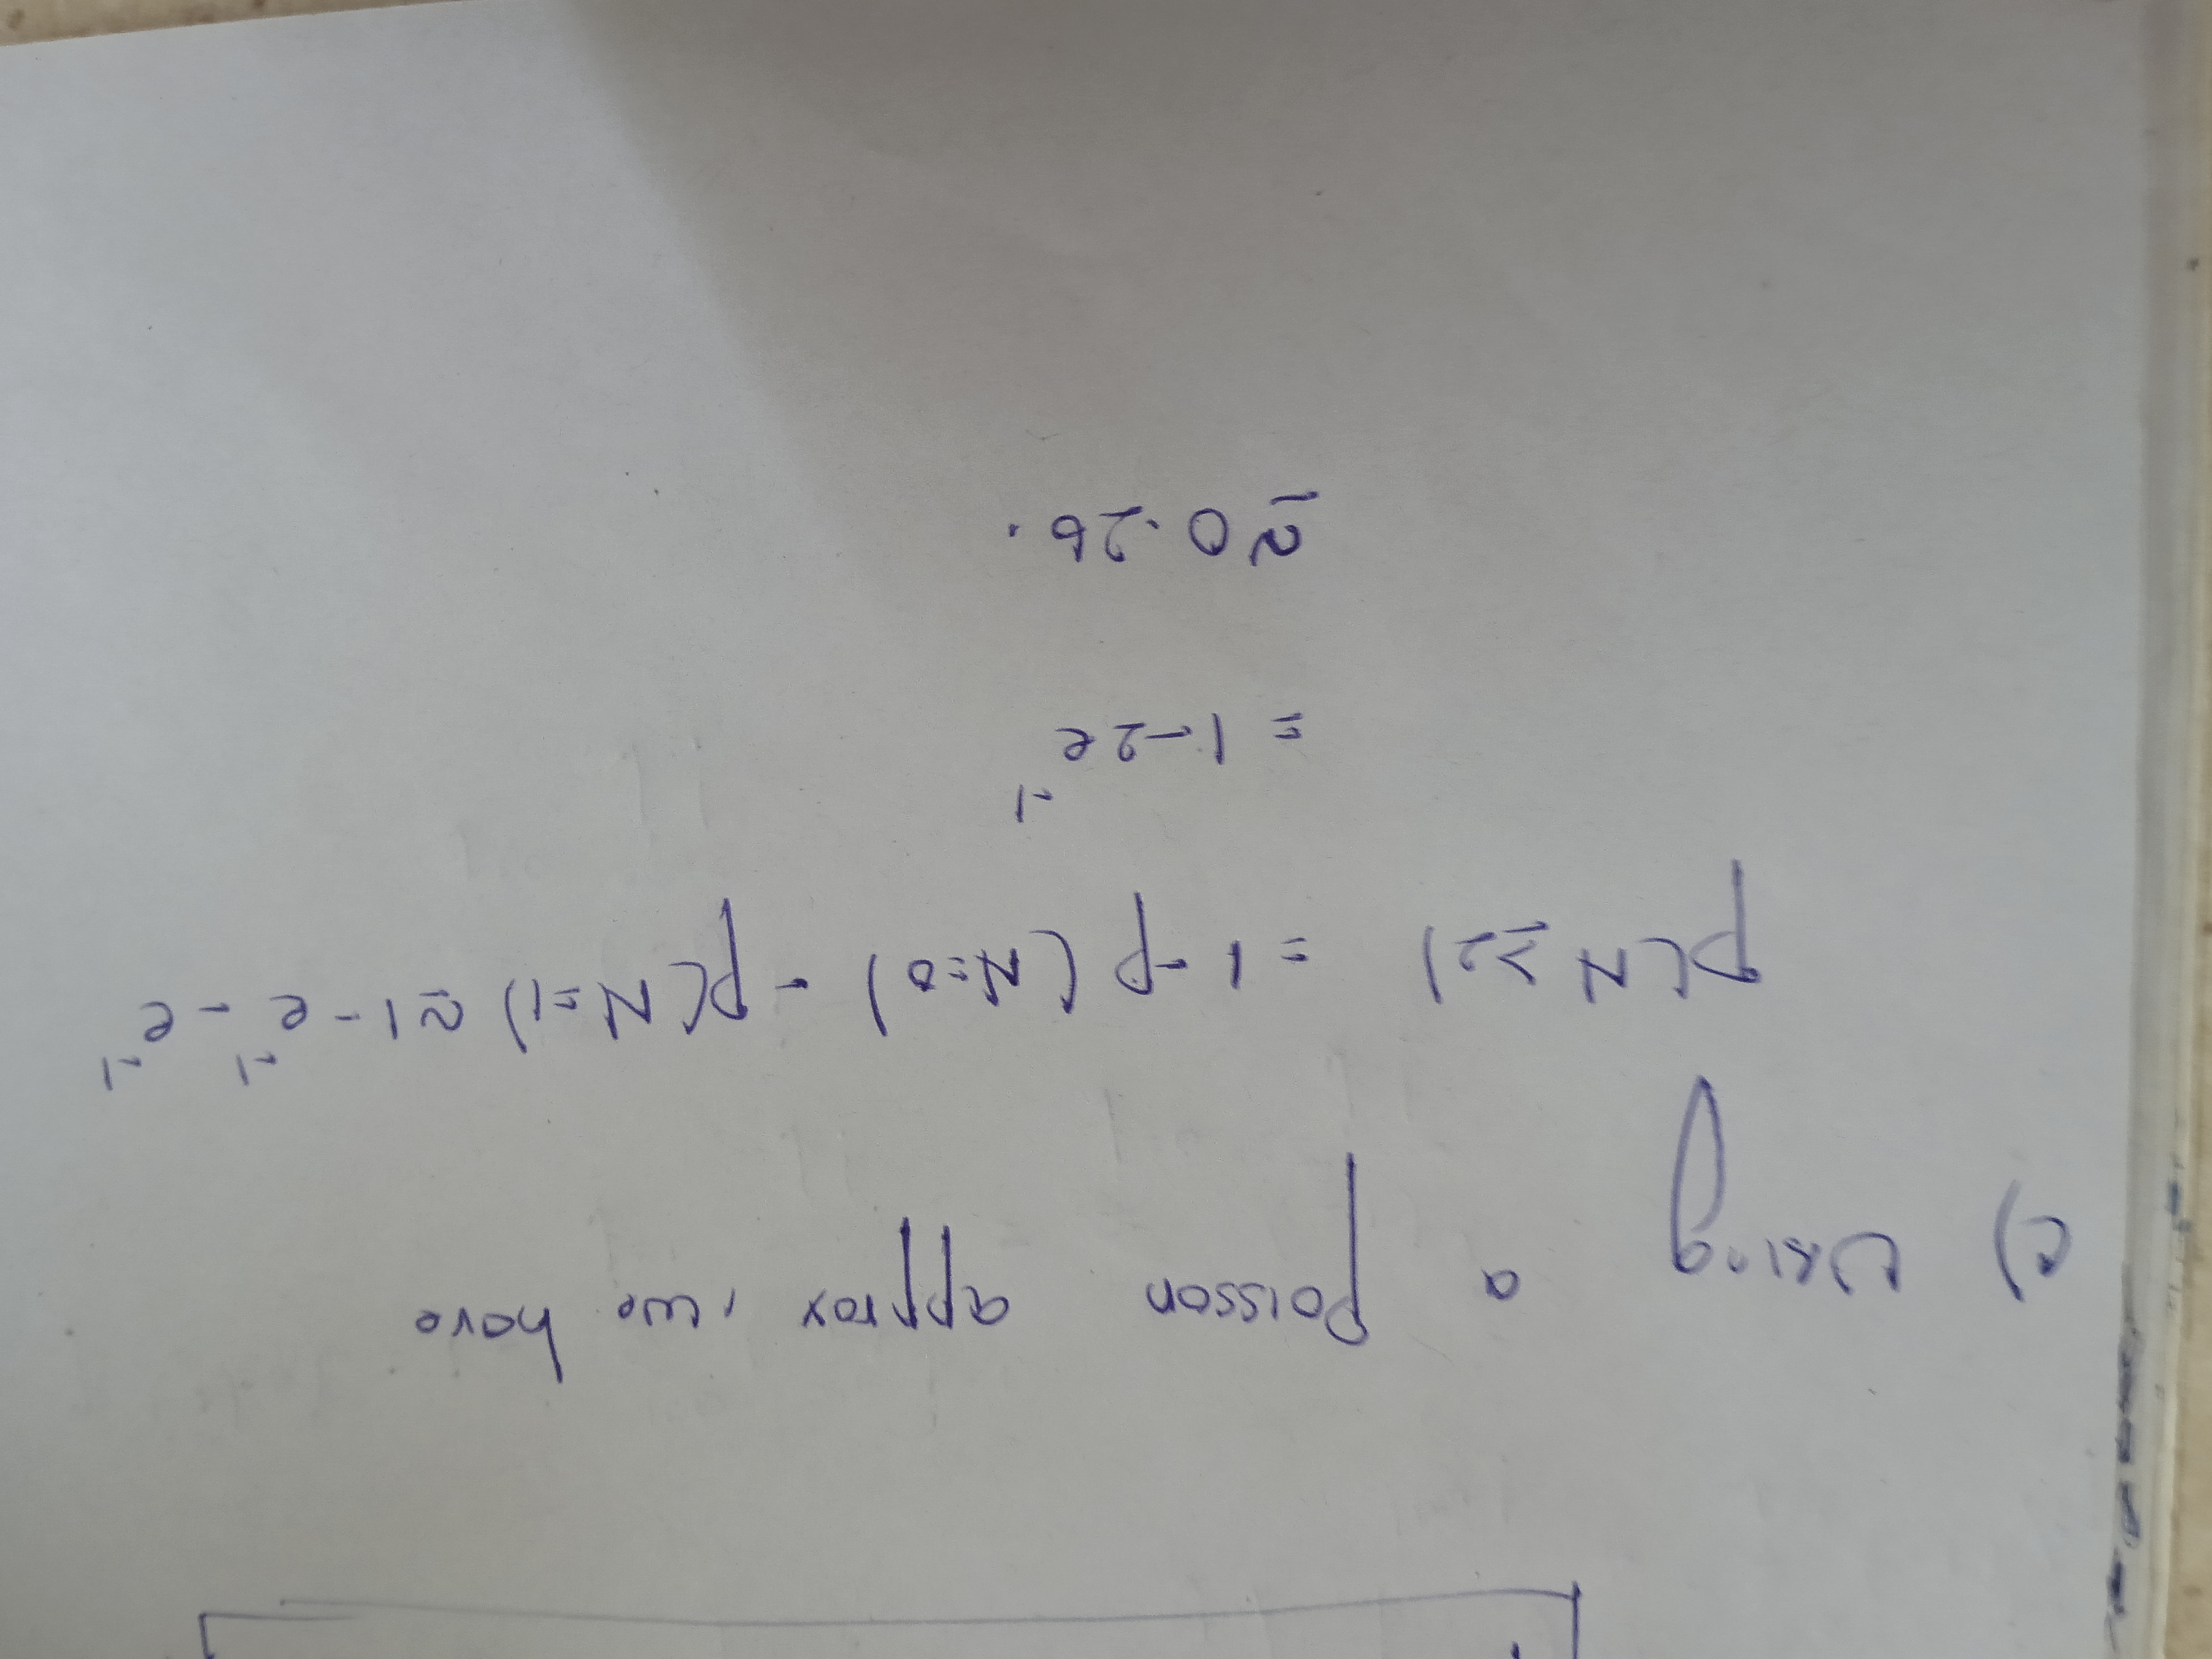 c) Using a poisson approx, we have
P(N ≥ 2) = 1 - P(N=0) - P(N=1) ≈ 1 - e⁻¹ - e⁻¹
= 1 - 2e⁻¹
≈ 0.26.